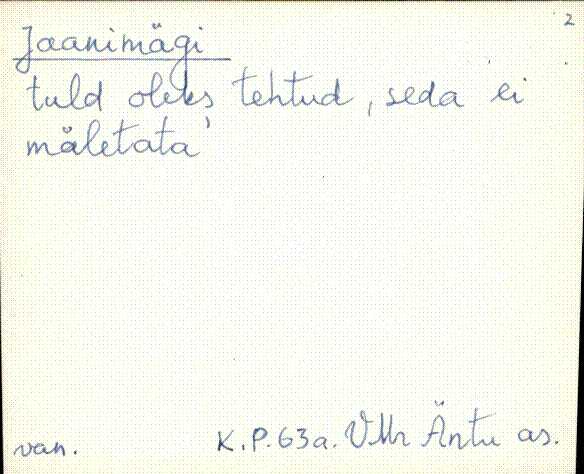 2
Jaanimägi
tuld oleks tehtud, seda ei
mäletata'
van. K.P. 63a. VMr Äntu as.